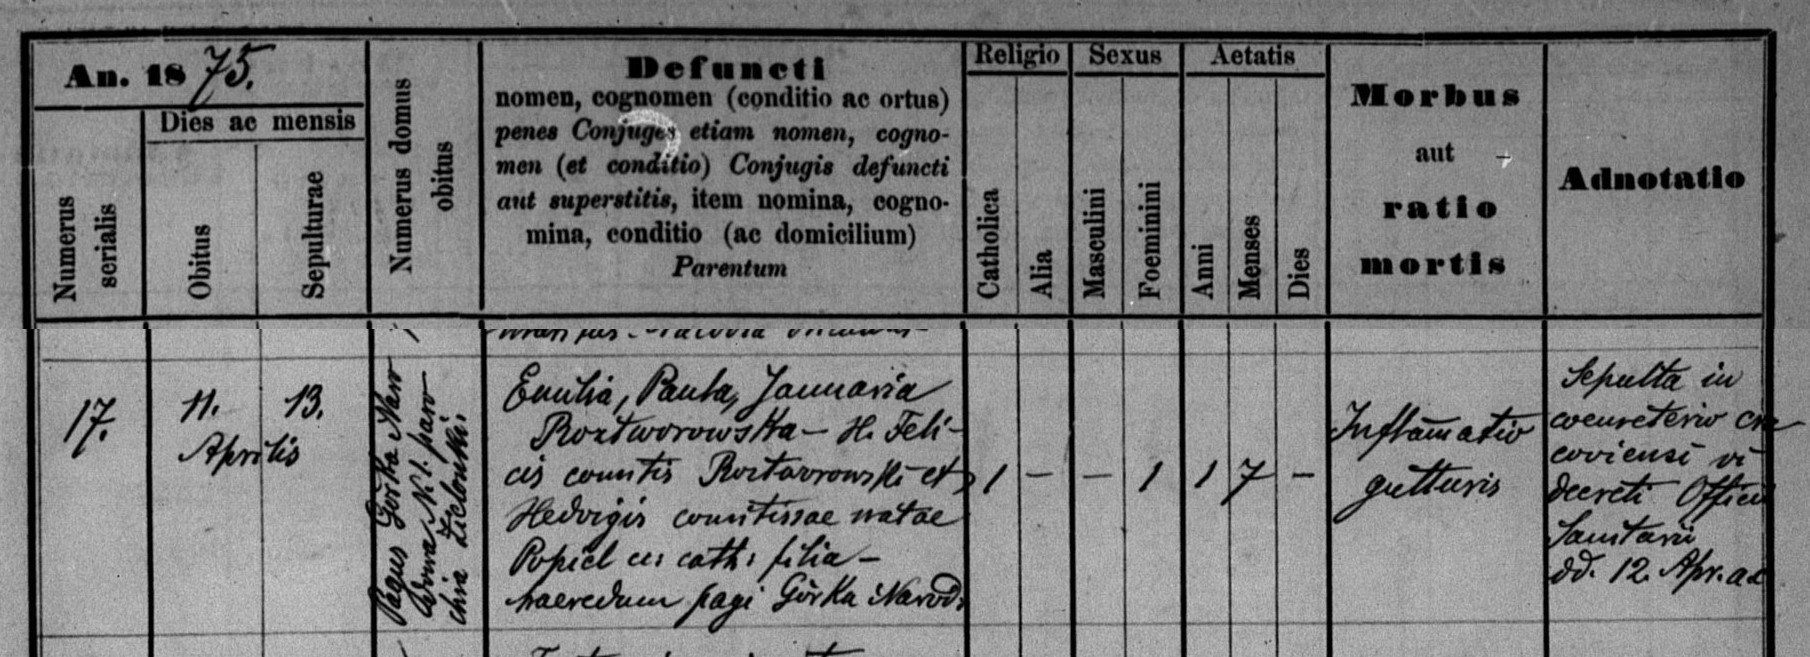 An. 1875.
Dies ac mensis
Numerus serialis
Obitus
Sepulturae
Numerus domus obitus
Defuncti
nomen, cognomen (conditio ac ortus)
penes Conjuges etiam nomen, cogno-
men (et conditio) Conjugis defuncti
aut superstitis, item nomina, cogno-
mina, conditio (ac domicilium)
Parentum
Religio
Catholica
Alia
Sexus
Masculini
Foeminini
Aetatis
Anni
Menses
Dies
Morbus
aut
ratio
mortis
Adnotatio
17.
11. 13.
Aprilis
Pagus Górka Naro
domu N. 1. paro
chia Zielonki.
Emilia, Paula, Januaria
Roztworowska – H. Feli-
cis comitis Roztworowski et
Hedvigis comitissae natae
Popiel cu cath: filia –
haeredum pagi Górka Narod:
1 – – 1 1 7 –
Inflamatio
gutturis
Sepulta in
coemeterio cra
coviensi vi
decreti Officii
Sanitarii
dd. 12. Apr. a.c